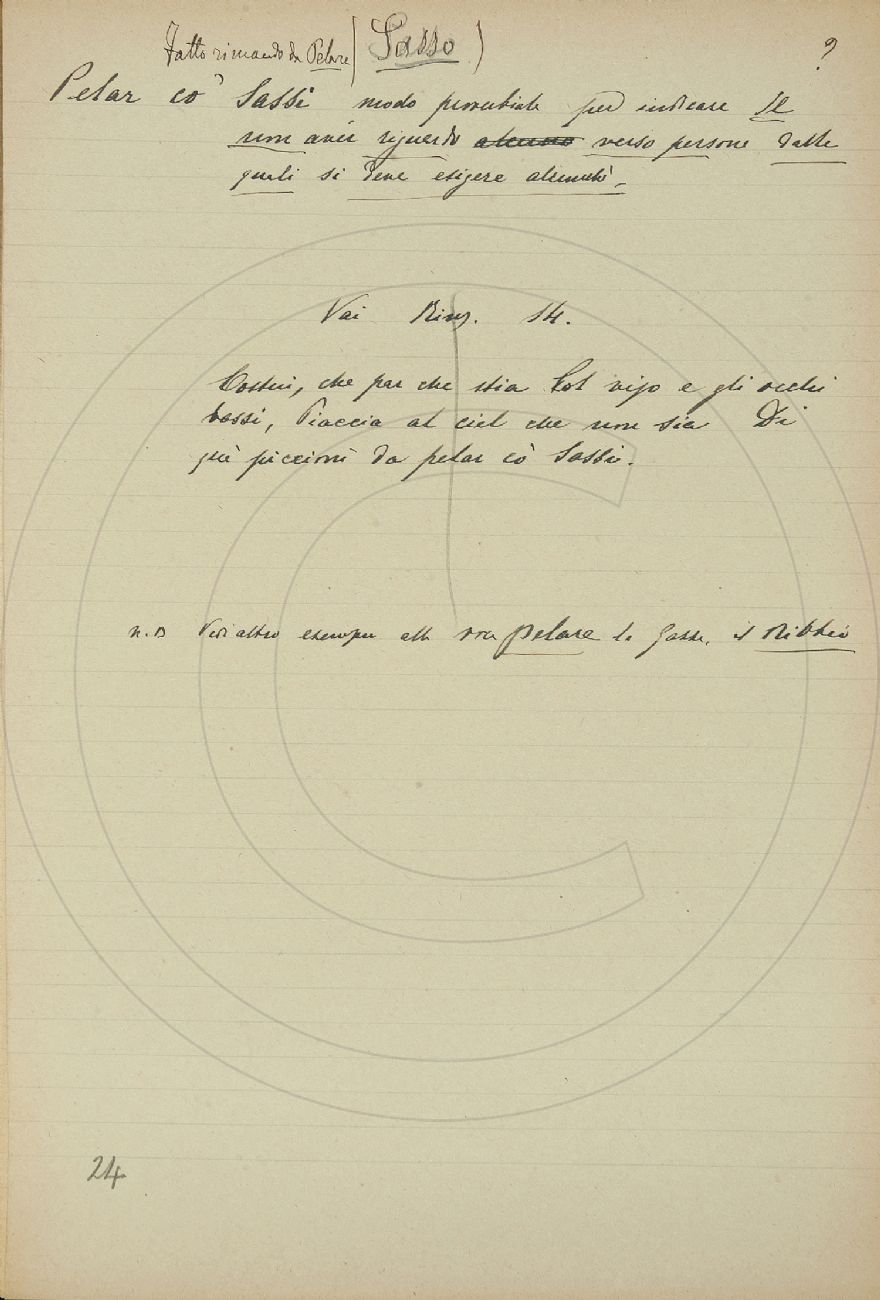 Fatto rimando da Pelare (Sasso) ?
Pelar co' Sassi modo proverbiale per indicare Il
non aver riguardo alcuno verso persone dalle
quali si deve esigere alcunchè.
Vai Rim. 14.
Costui, che par che stia Col viso e gli occhi
bassi, Piaccia al ciel che non sia Di
que' piccioni da pelar co' Sassi.
n.B Vedi altro esempio alla voce Pelare la Gazza, il Nibbio
24